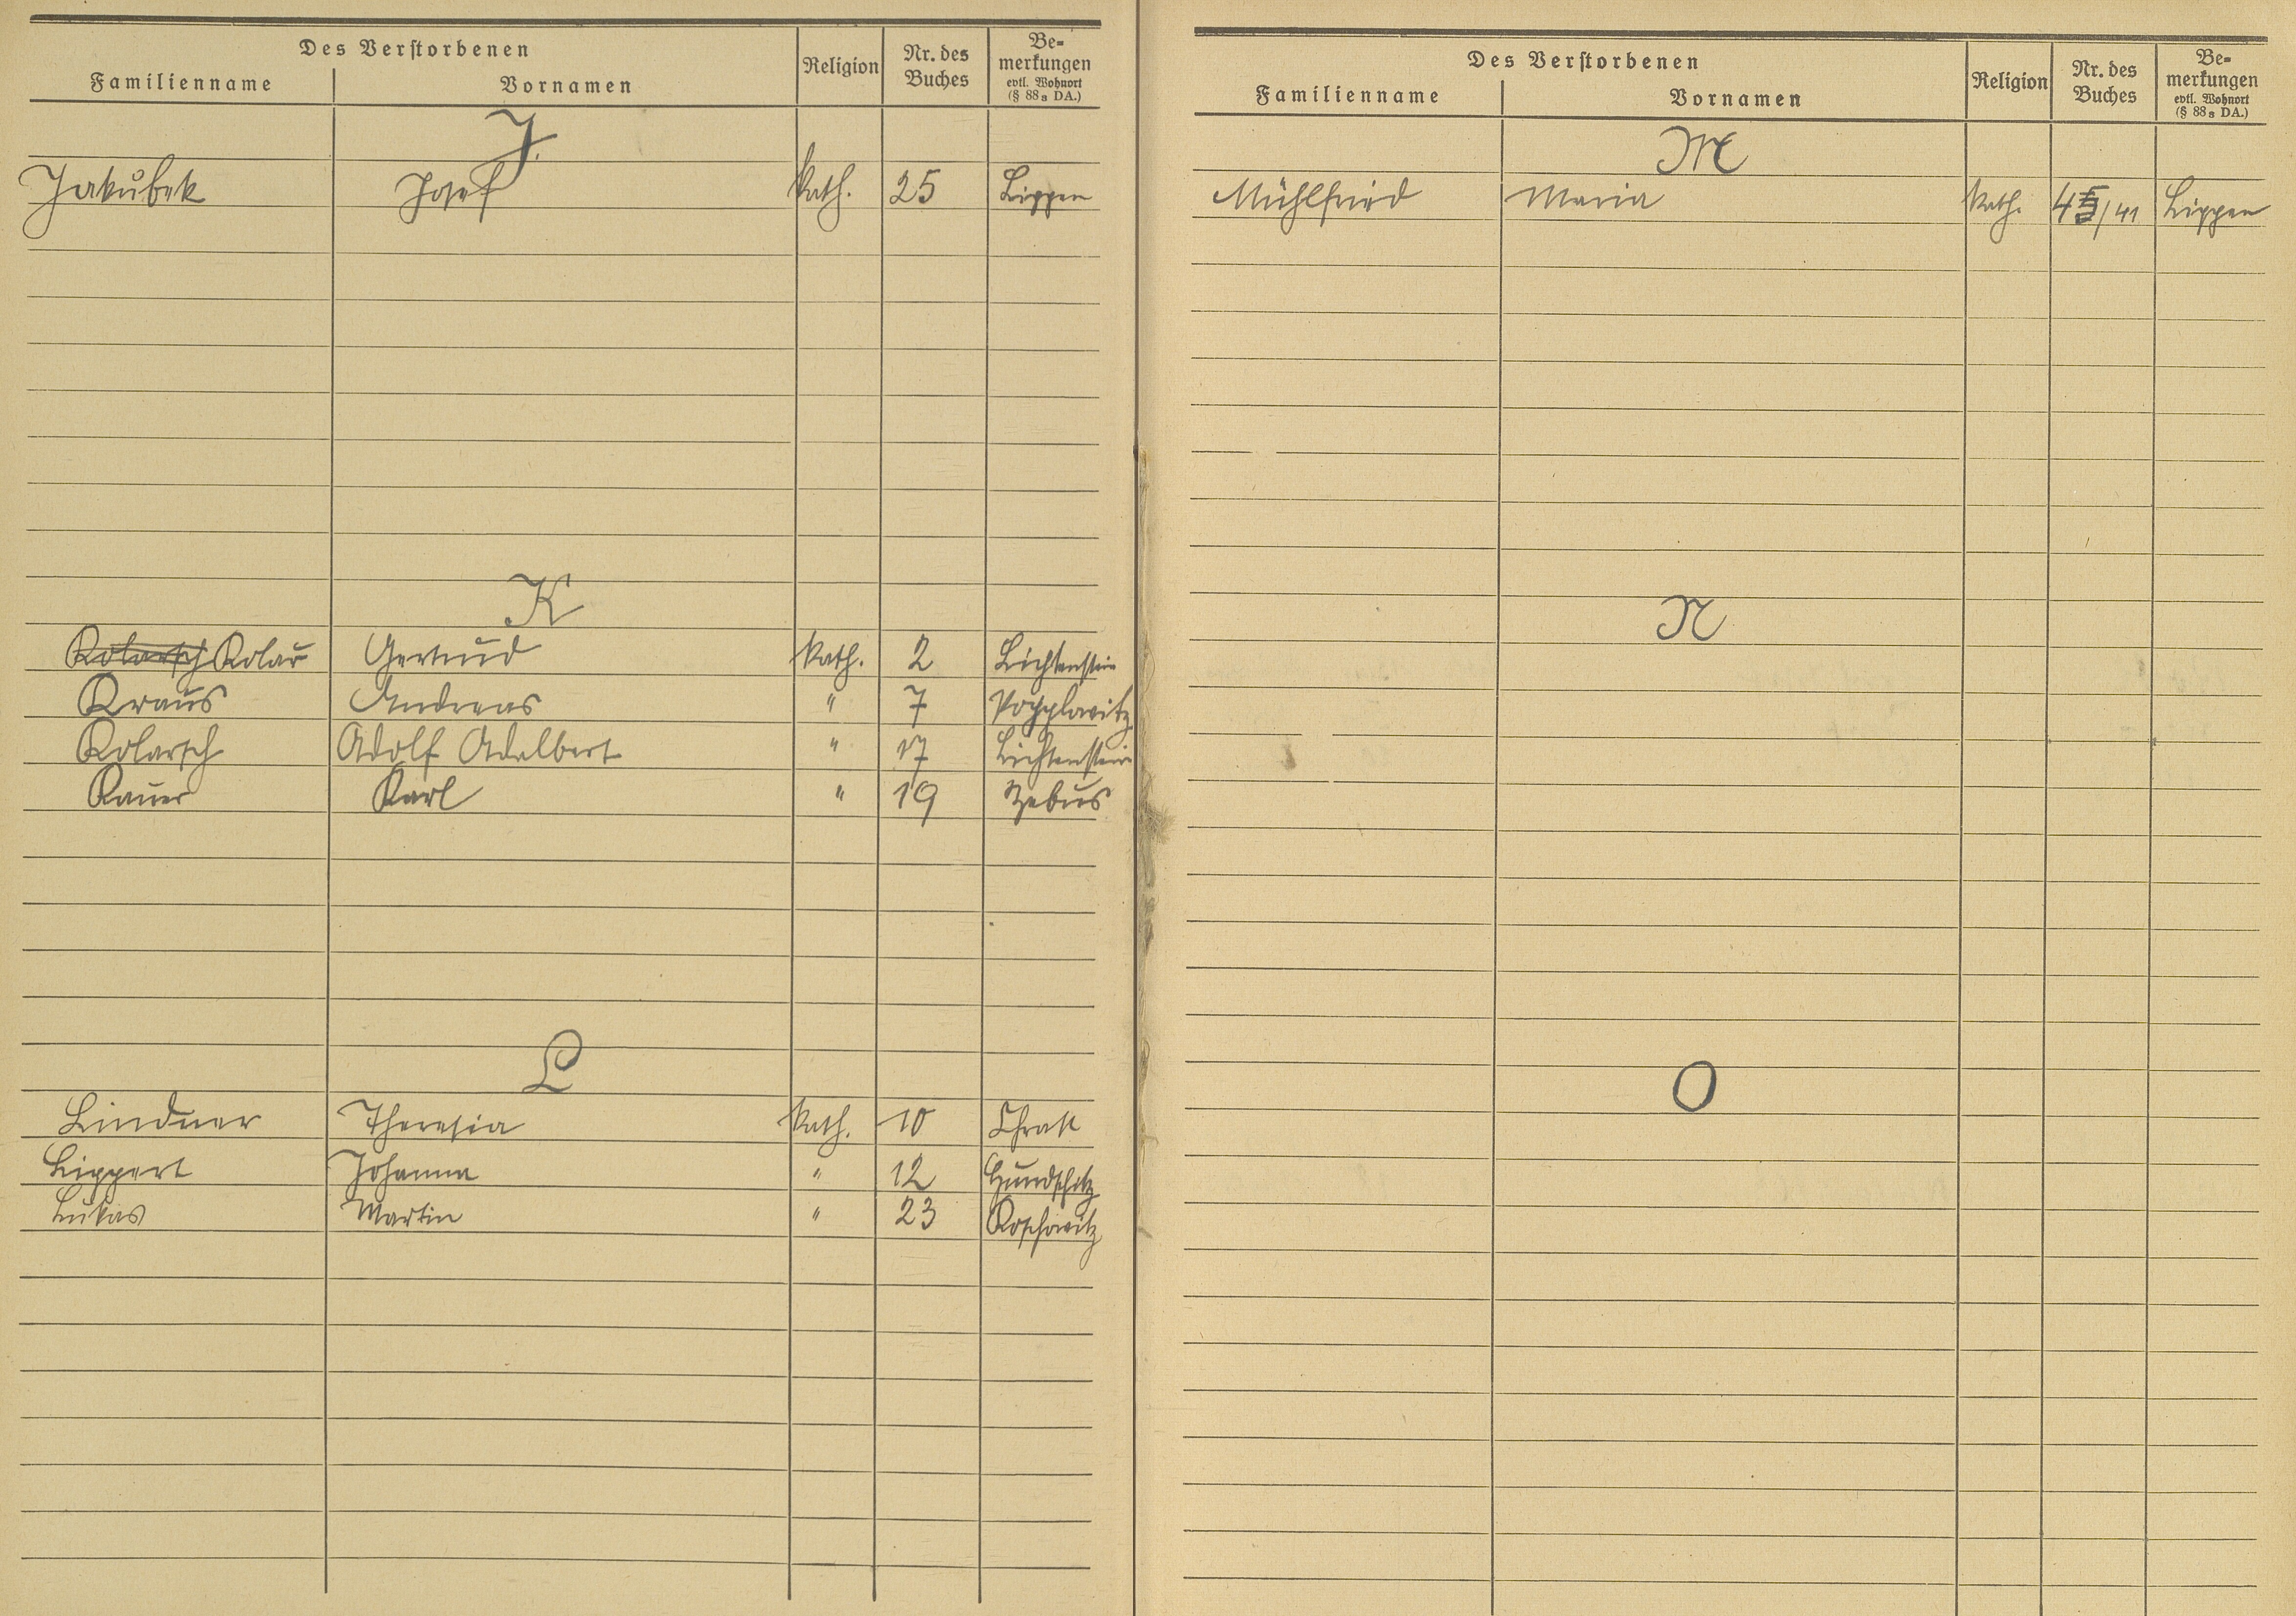 Des Verstorbenen
Familienname Vornamen Religion Nr. des Buches Bemerkungen evtl. Wohnort (§ 88a DA.)
J.
Jakubek Josef kath. 25 Lippen
K
Kolarsch Kolar Gertrud kath. 2 Lichtenstein
Kraus Andreas " 7 Popplowitz
Kolarsch Adolf Adalbert " 17 Lichtenstein
Kauer Karl " 19 Zebus
L
Lindner Theresia kath. 10 Chrast
Lippert Johanna " 12 Hundschitz
Lukas Martin " 23 Roschowitz
Des Verstorbenen
Familienname Vornamen Religion Nr. des Buches Bemerkungen evtl. Wohnort (§ 88a DA.)
M
Mühlfried Maria kath. Lippen
N
O